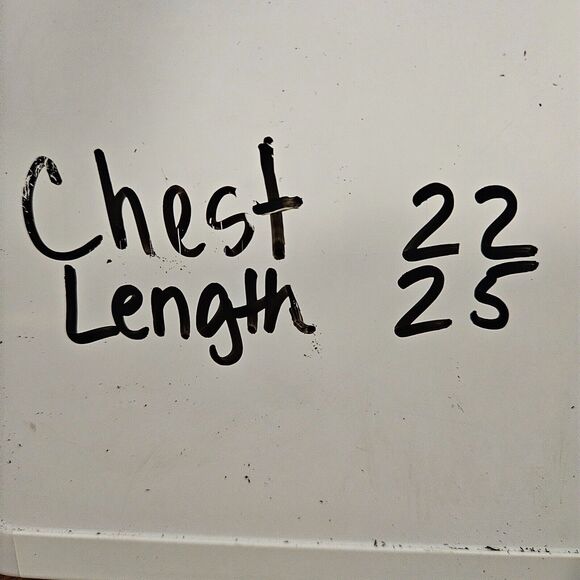 Chest 22
Length 25